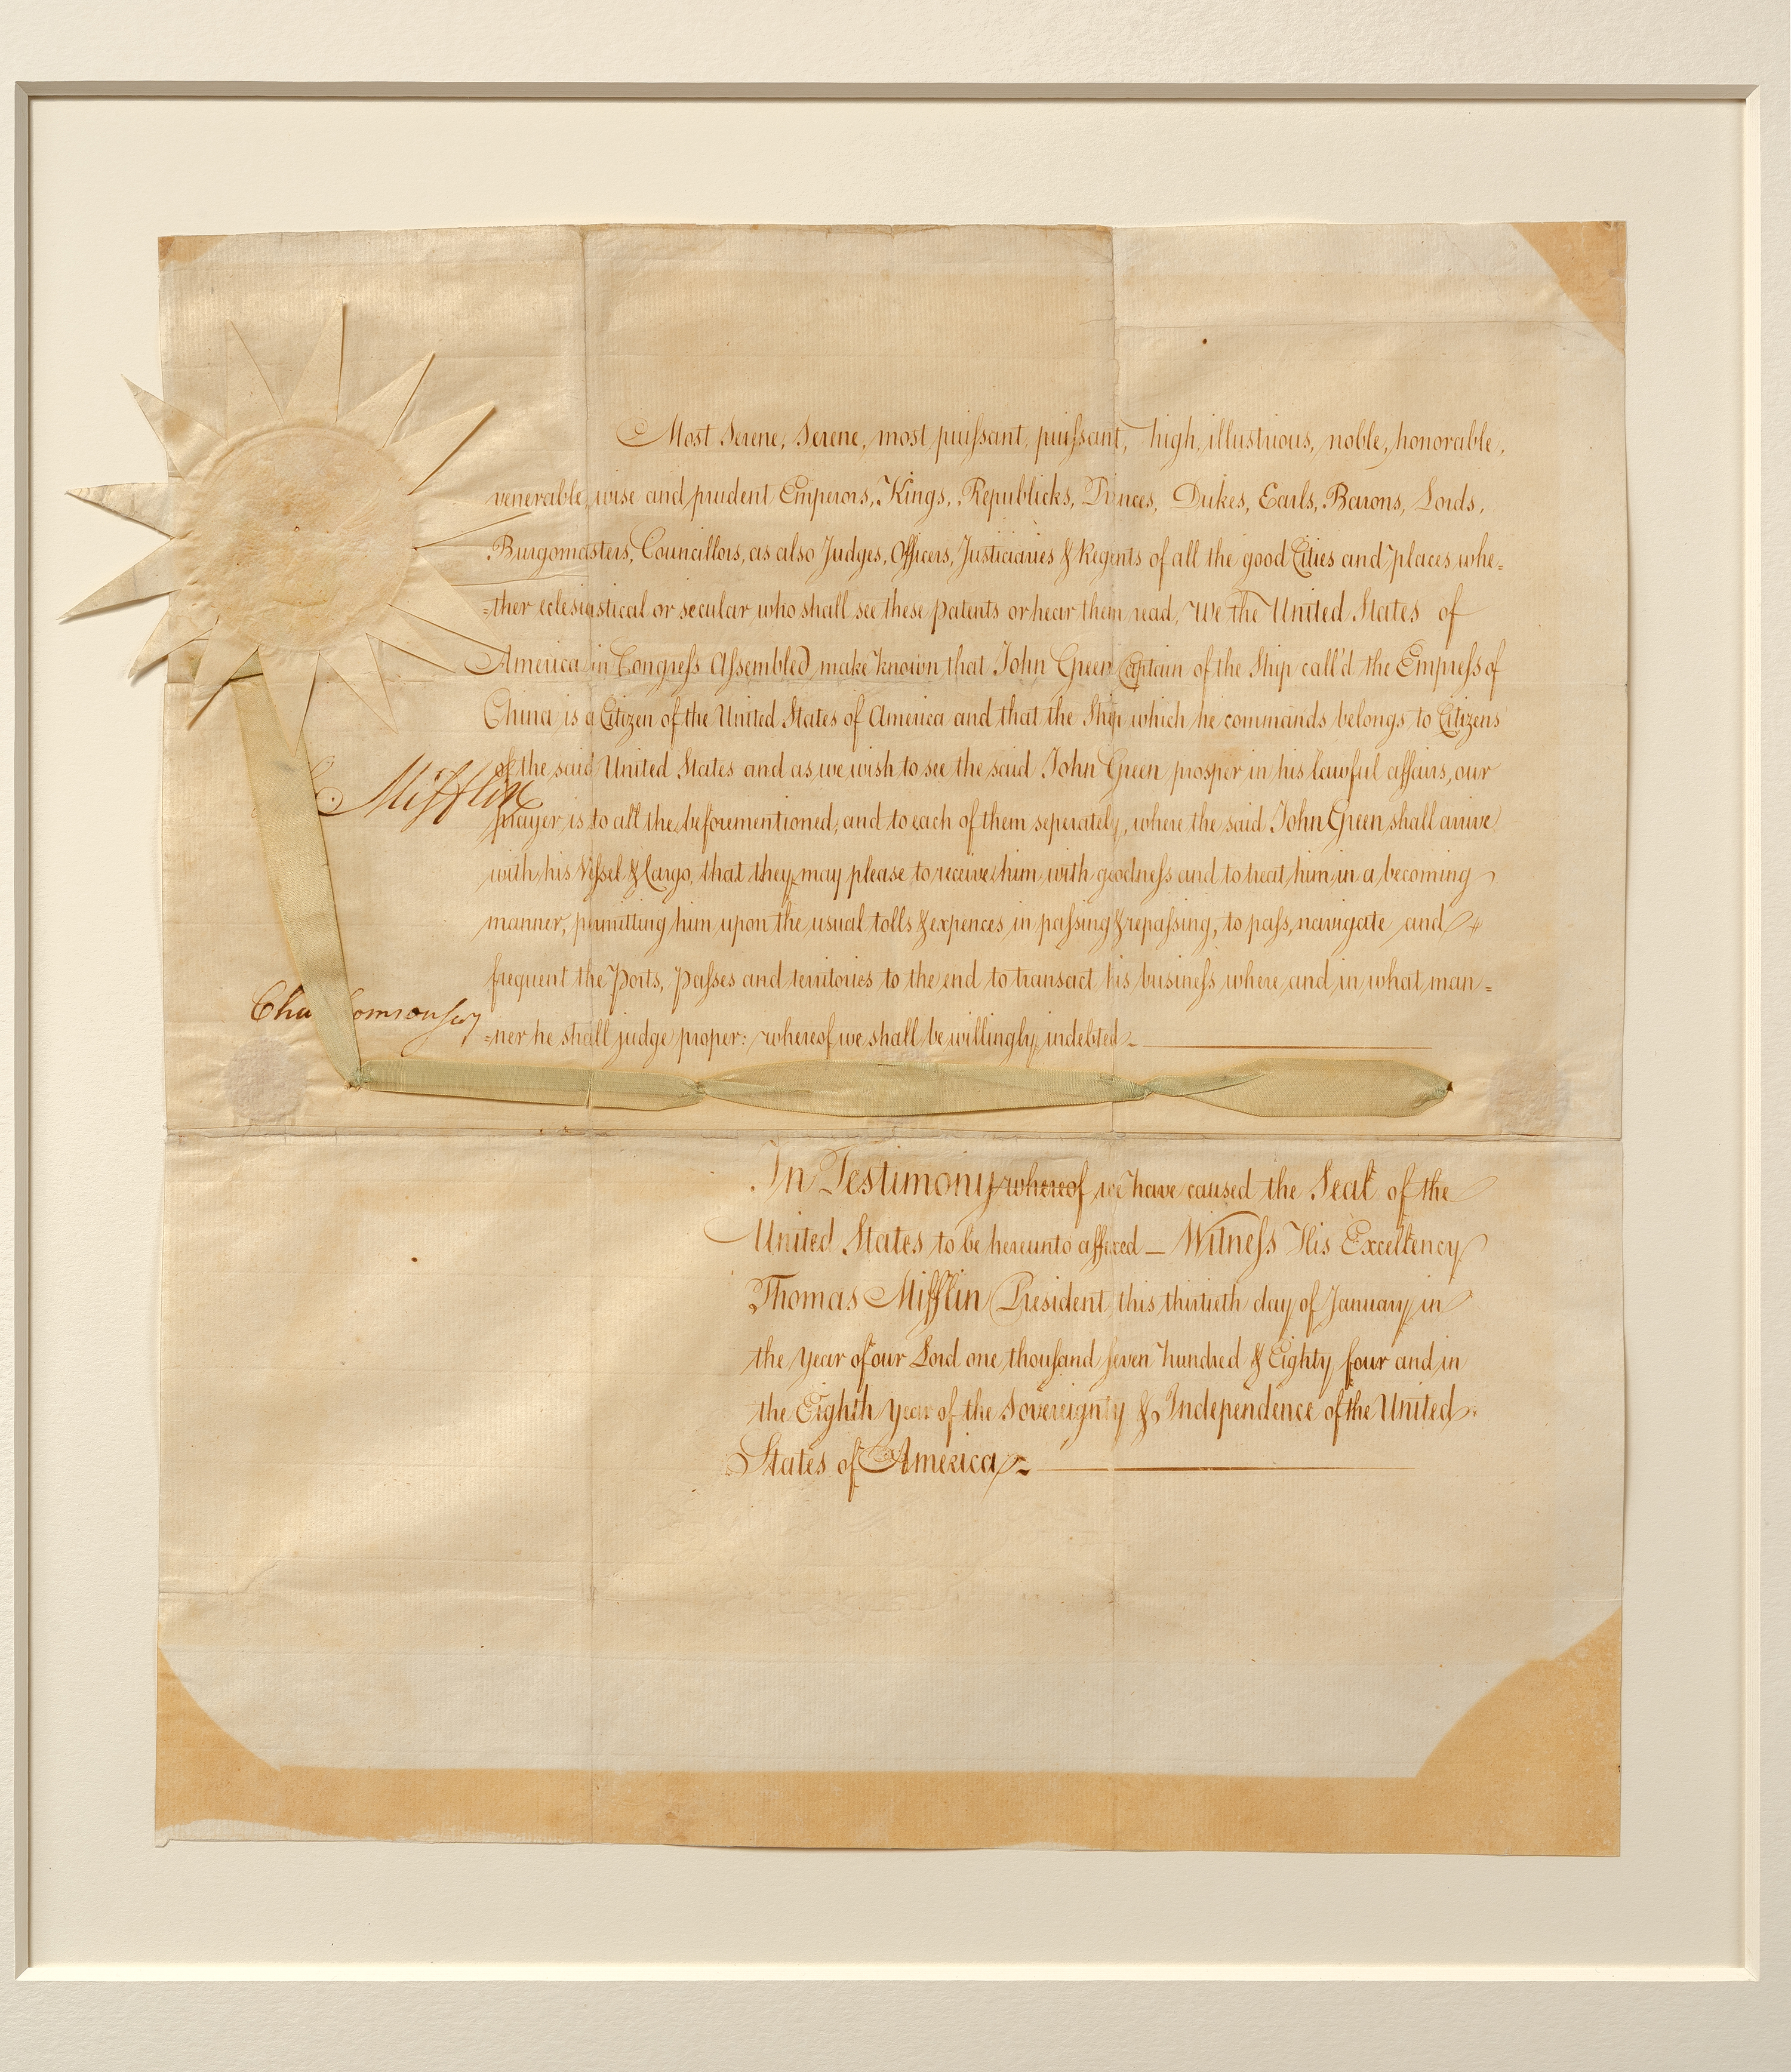 Most Serene, Serene, most puissant, puissant, high, illustrious, noble, honorable,
venerable, wise and prudent Emperors, Kings, Republicks, Princes, Dukes, Earls, Barons, Lords,
Burgomasters, Councillors, as also Judges, Officers, Justiciaries & Regents of all the good Cities and places whe=
=ther eclesiastical or secular who shall see these patents or hear them read, We the United States of
America in Congress Assembled make known that John Green Captain of the Ship call'd the Empress of
China is a Citizen of the United States of America and that the Ship which he commands belongs to Citizens
of the said United States and as we wish to see the said John Green prosper in his lawful affairs, our
Mifflin
prayer is to all the beforementioned, and to each of them seperately, where the said John Green shall arrive
with his Vessel & Cargo, that they may please to receive him with goodness and to treat him in a becoming
manner, permitting him upon the usual tolls & expences in passing & repassing, to pass, navigate and
frequent the Ports, Passes and territories to the end to transact his business where and in what man=
Cha omson Secy
=ner he shall judge proper: whereof we shall be willingly indebted
In Testimony whereof we have caused the Seal of the
United States to be hereunto affixed — Witness His Excellency
Thomas Mifflin President this thirtieth day of January in
the year of our Lord one thousand seven hundred & Eighty four and in
the Eighth Year of the Sovereignty & Independence of the United
States of America